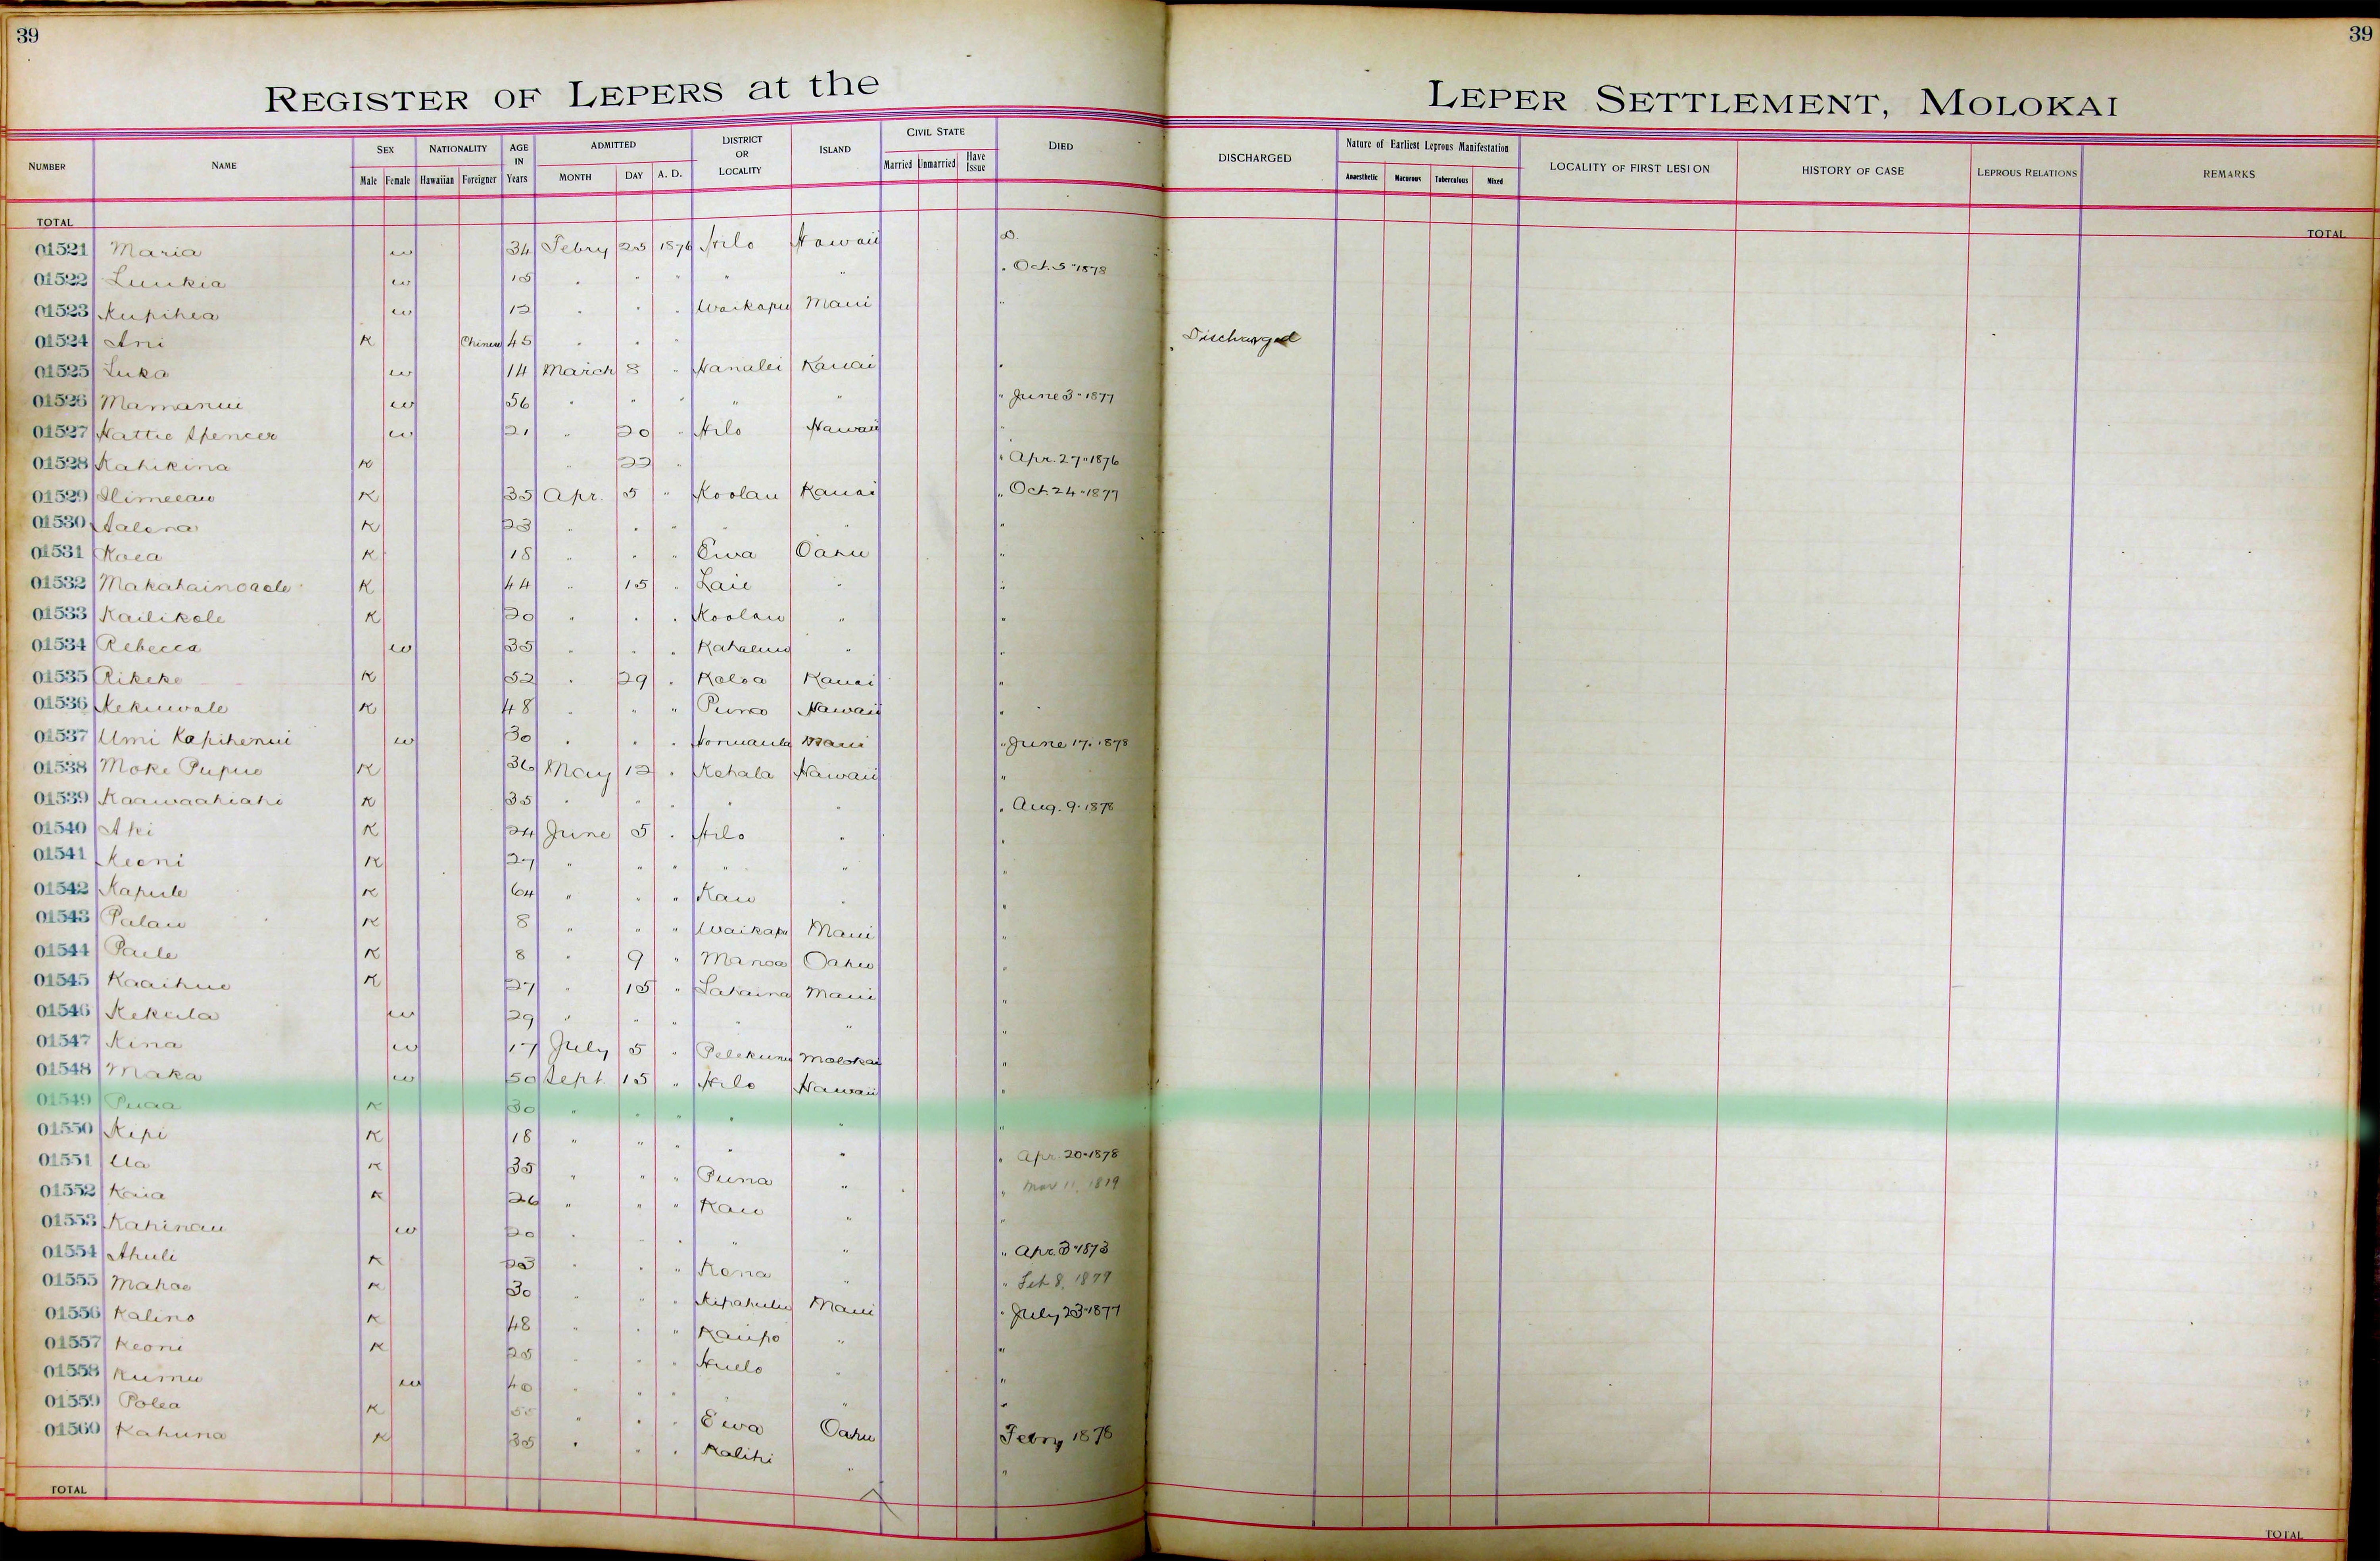 39
39
REGISTER OF LEPERS at the LEPER SETTLEMENT, MOLOKAI
NUMBER NAME SEX Male Female NATIONALITY Hawaiian Foreigner AGE IN Years ADMITTED MONTH DAY A. D. DISTRICT OR LOCALITY ISLAND CIVIL STATE Married Unmarried Have Issue DIED DISCHARGED Nature of Earliest Leprous Manifestation Anaesthetic Macurous Tuberculous Mixed LOCALITY OF FIRST LESION HISTORY OF CASE LEPROUS RELATIONS REMARKS
TOTAL TOTAL
01521 Maria w 34 Febry 25 1876 Hilo Hawaii D.
01522 Luukia w 15 " " " " " " Oct. 5 "1878
01523 Kupihea w 12 " " " Waikapu Maui "
01524 Ani K Chinese 45 " " " Discharged
01525 Luka w 14 March 8 " Hanalei Kauai "
01526 Mamanui w 56 " " " " " " June 3 - 1877
01527 Hattie Spencer w 21 " 20 " Hilo Hawaii "
01528 Kahikina K " 22 " " Apr. 27 " 1876
01529 K 35 Apr. 5 " Koolau Kauai " Oct. 24 - 1877
01530 Aalona K 23 " " " " " "
01531 Koea K 18 " " " Ewa Oahu "
01532 Makahainoaole K 44 " 15 " Laie " "
01533 Kailikole K 20 " " " Koolau " "
01534 Rebecca w 35 " " " Kahaluu " "
01535 Rikeke K 52 " 29 " Koloa Kauai "
01536 Kekuwale K 48 " " " Puna Hawaii "
01537 Umi Kapihenui w 30 " " " Honuaula Maui " June 17. 1878
01538 Moke Pupuo K 36 May 12 " Kohala Hawaii "
01539 Kaawaahiahi K 35 " " " " " " Aug. 9. 1878
01540 Aki K 24 June 5 " Hilo " "
01541 Keoni K 27 " " " " " "
01542 Kapule K 64 " " " Kau " "
01543 Palau K 8 " " " Waikapu Maui "
01544 Paele K 8 " 9 " Manoa Oahu "
01545 Kaaihue K 27 " 15 " Lahaina Maui "
01546 Kekula w 29 " " " " " "
01547 Kina w 17 July 5 " Pelekunu Molokai "
01548 Maka w 50 Sept. 15 " Hilo Hawaii "
01549 Puaa K 30 " " " " " "
01550 Kepi K 18 " " " " " " Apr. 20 - 1878
01551 Ua K 35 " " " Puna " " Mar 11, 1879
01552 Kaia K 26 " " " Kau " "
01553 Kahinau w 20 " " " " " " Apr. 3 - 1873
01554 Ahuli K 23 " " " Kona " " Feb 8, 1879
01555 Mahoe K 30 " " " Kipahulu Maui " July 23 - 1877
01556 Kalino K 48 " " " Kaupo " "
01557 Keoni K 25 " " " Huelo " "
01558 Kumu w 40 " " " " "
01559 Polea K 55 " " " Ewa Oahu Febry 1878
01560 Kahuna K 35 " " " Kalihi " "
TOTAL TOTAL